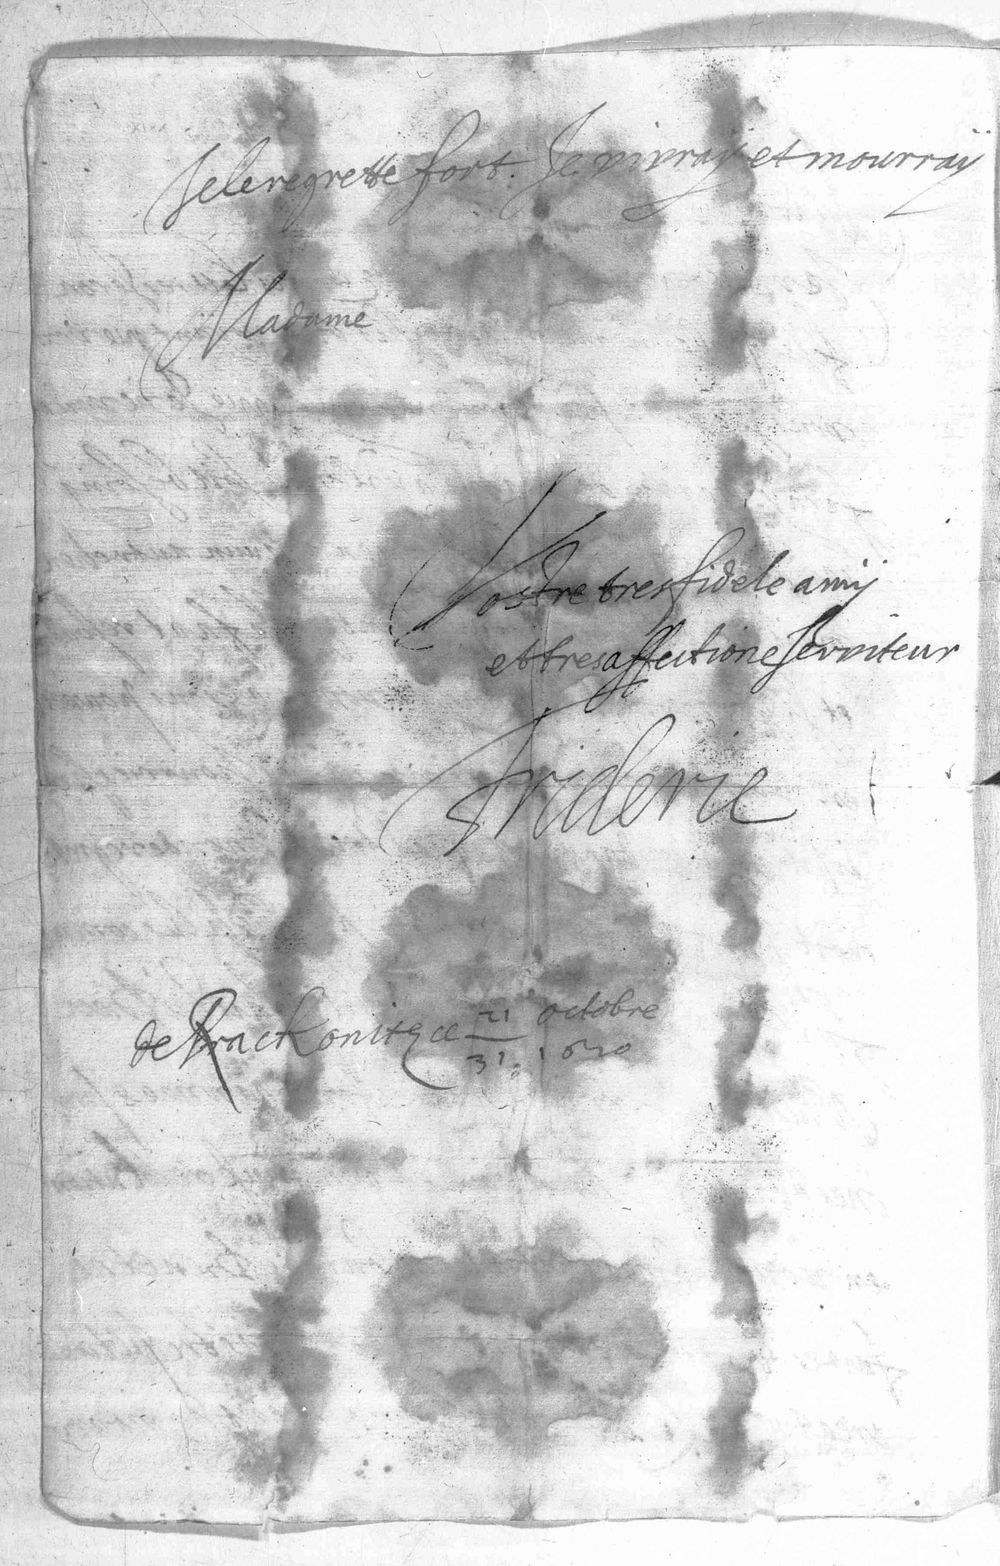 Je le regrette fort. Je vivray et mourray
Madame
Vostre tres fidele amij
et tres affectione serviteur
Frideric
de Rackonitz ce 21/31 octobre
1620